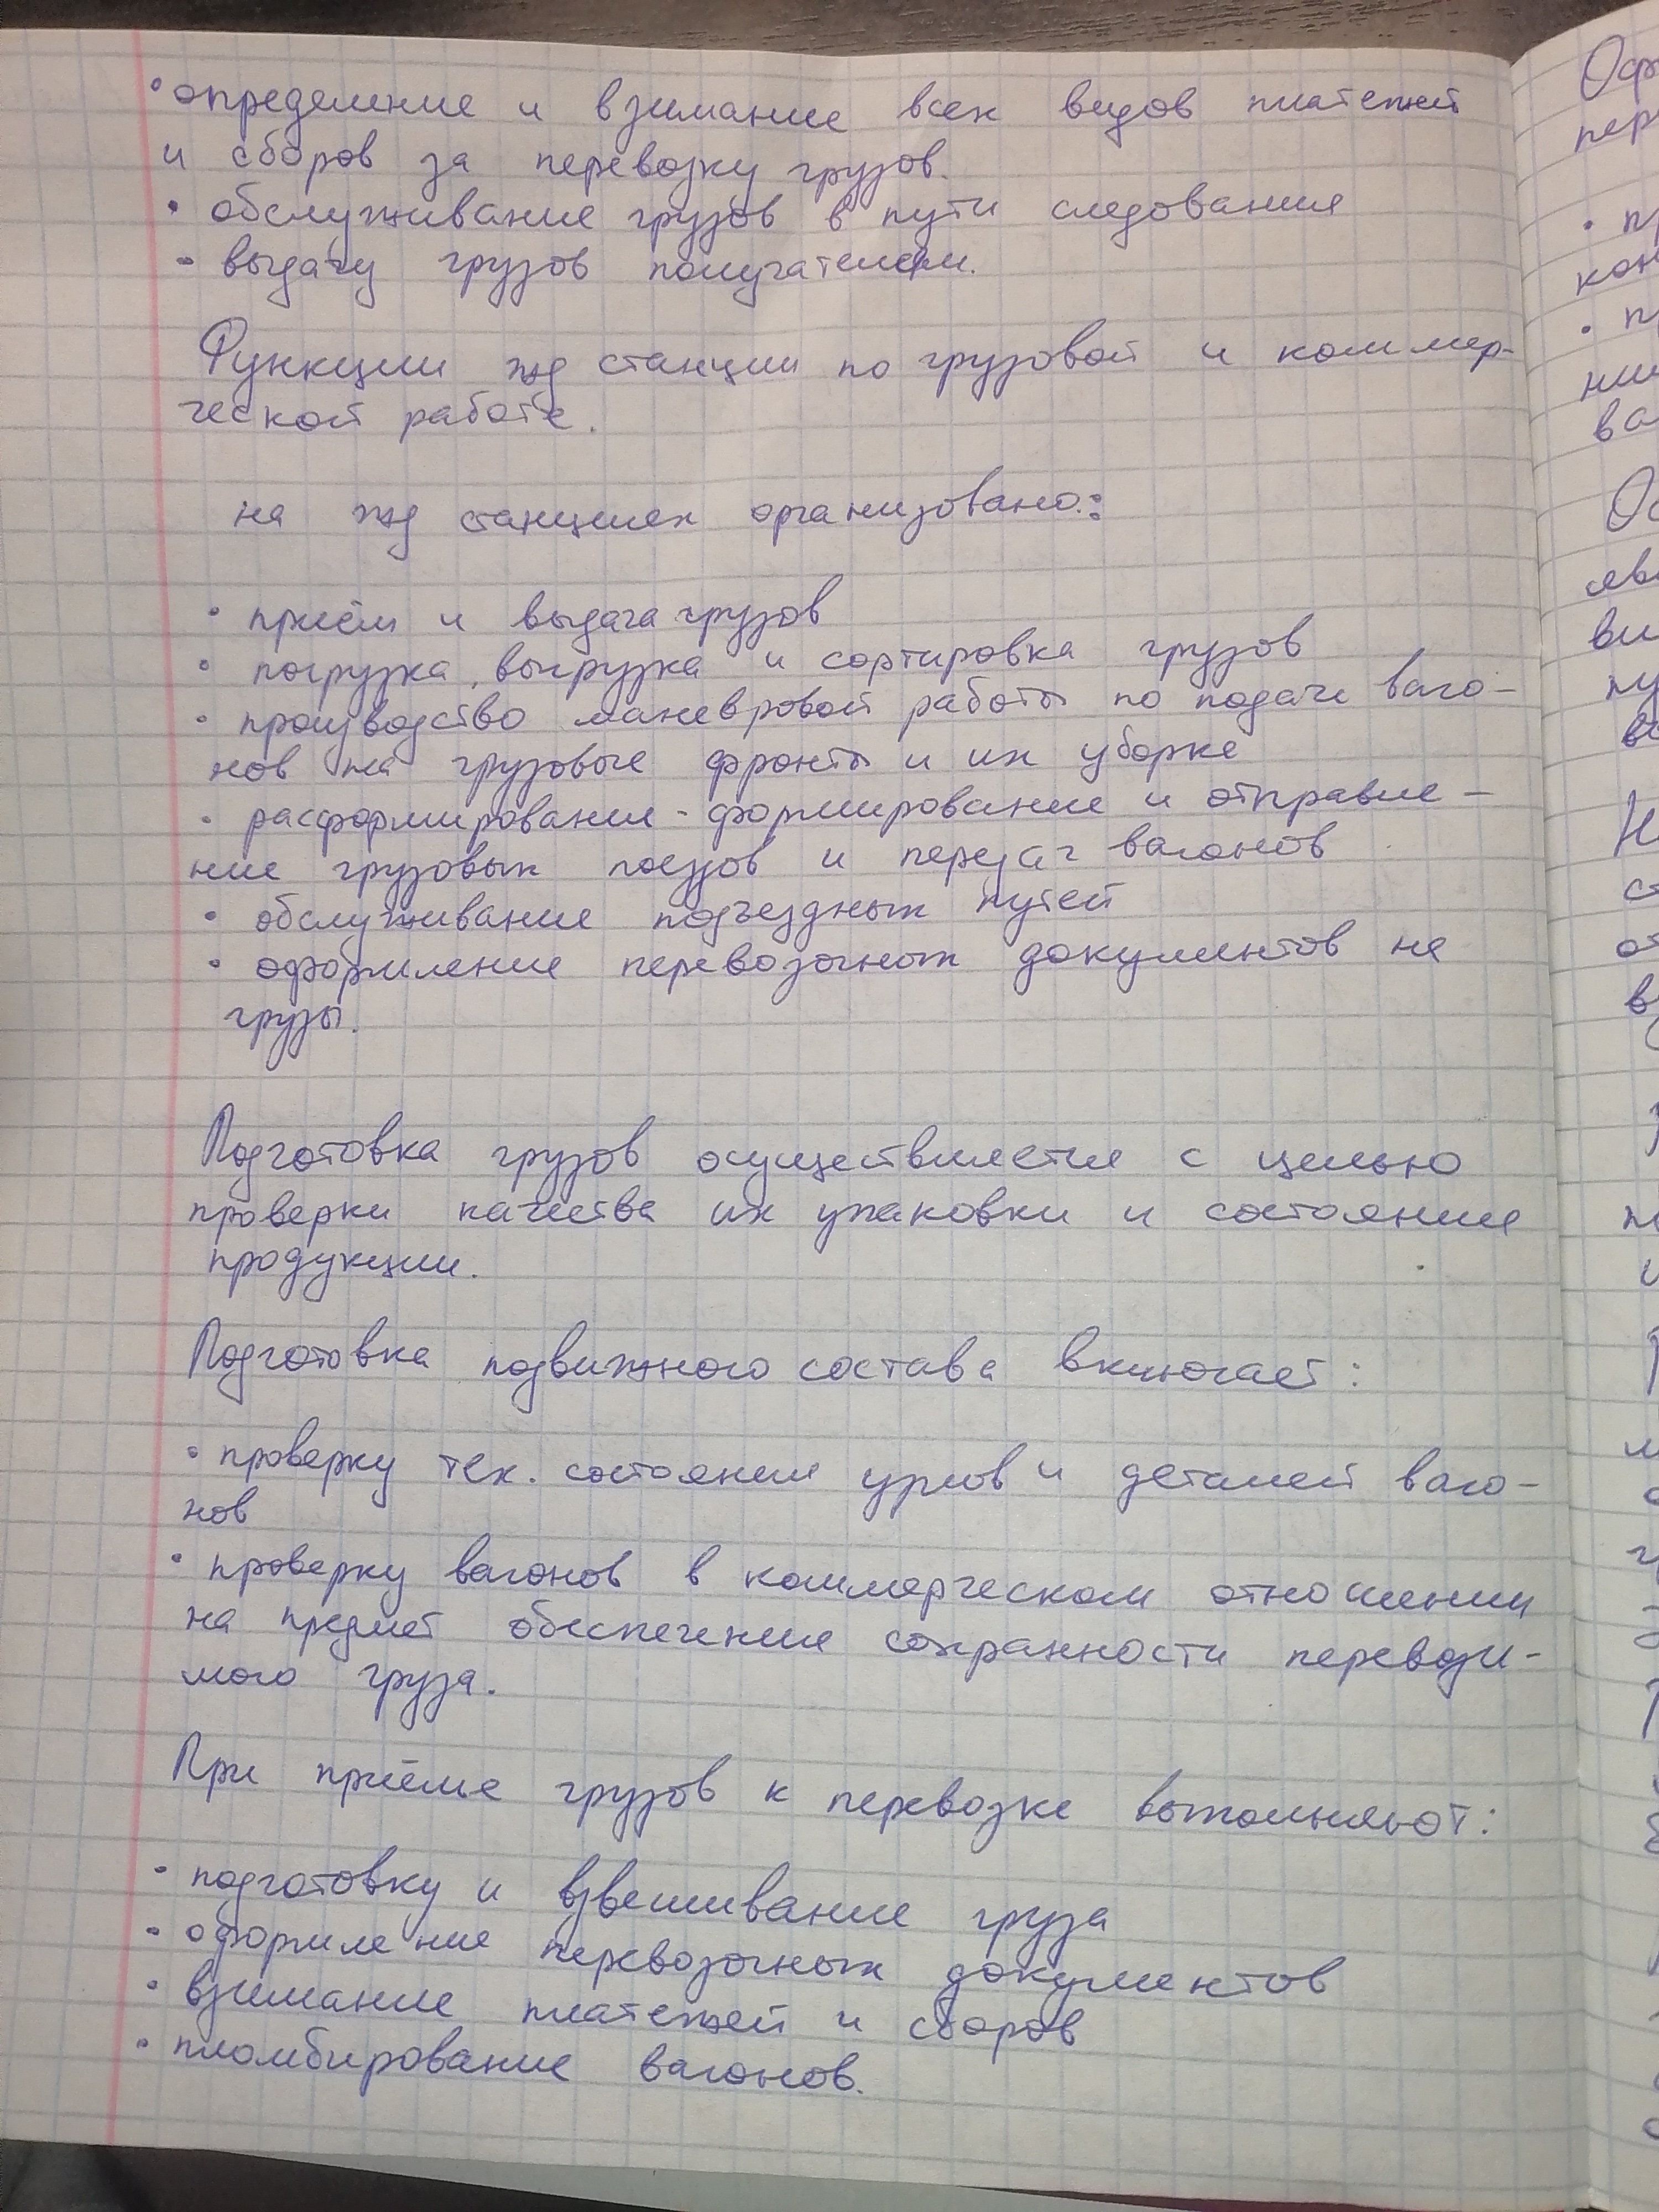 • определение и взимание всех видов платежей
и сборов за перевозку грузов.
• обслуживание грузов в пути следования
• выдачу грузов получателям.
Функции жд станции по грузовой и коммер-
ческой работе.
на жд станциях организовано:
• приём и выдача грузов
• погрузка, выгрузка и сортировка грузов
• производство маневровой работы по подаче ваго-
нов на грузовые фронты и их уборке
• расформирование-формирование и отправле-
ние грузовых поездов и передач вагонов
• обслуживание подъездных путей
• оформление перевозочных документов на
грузы.
Подготовка грузов осуществляется с целью
проверки качества их упаковки и состояния
продукции.
Подготовка подвижного состава включает:
• проверку тех. состояния узлов и деталей ваго-
нов
• проверку вагонов в коммерческом отношении
на предмет обеспечения сохранности перевози-
мого груза.
При приёме грузов к перевозке выполняют:
• подготовку и взвешивание груза
• оформление перевозочных документов
• взимание платежей и сборов
• пломбирование вагонов.